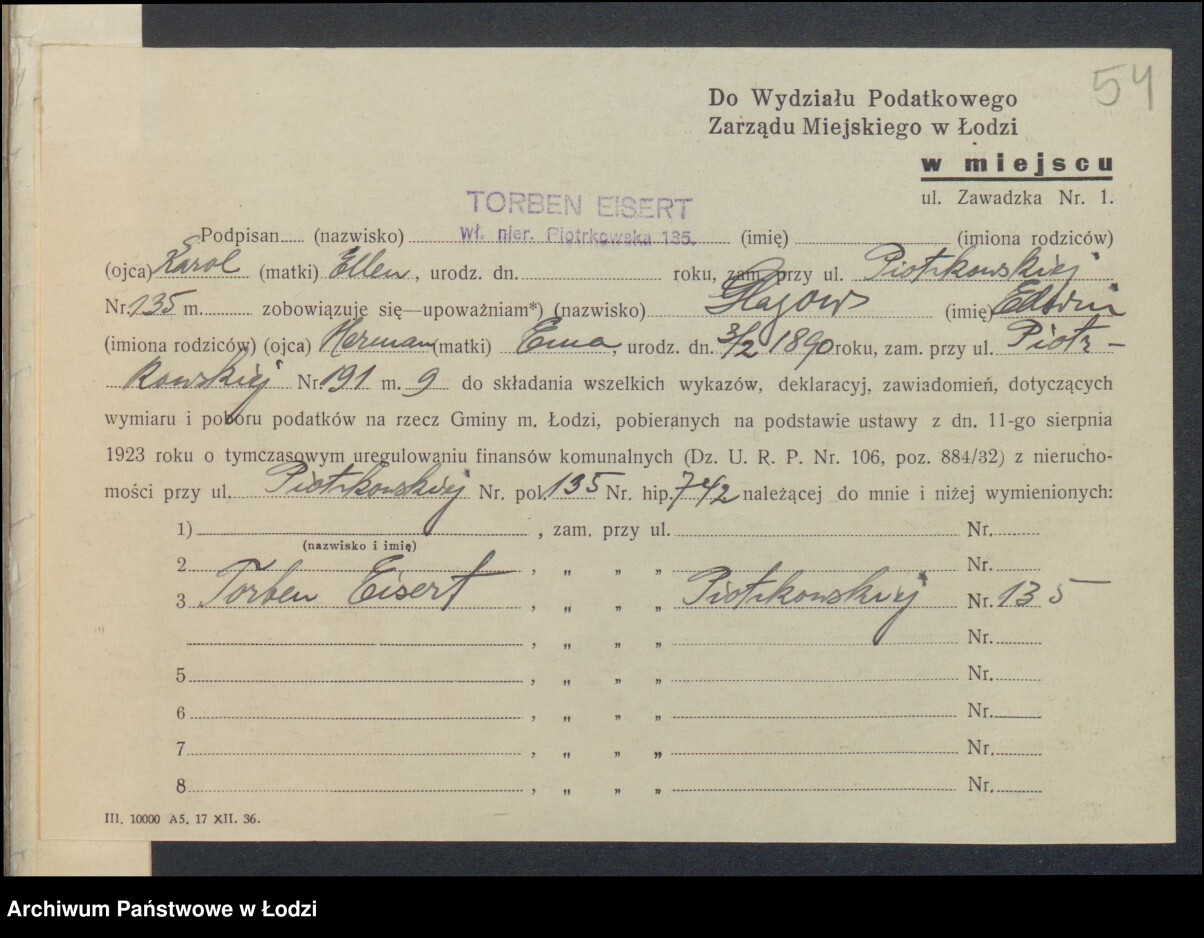 54
Do Wydziału Podatkowego
Zarządu Miejskiego w Łodzi
w miejscu
ul. Zawadzka Nr. 1.
TORBEN EISERT
Wł. nier. Piotrkowska 135.
Podpisan..... (nazwisko) (imię) (imiona rodziców)
(ojca) Karol (matki) Ellen, urodz. dn. roku, zam. przy ul. Piotrkowskiej
Nr. 135 m. zobowiązuje się—upoważniam*) (nazwisko) Glazow (imię) Edwin
(imiona rodziców) (ojca) Herman (matki) Ema, urodz. dn. 3/2 1890 roku, zam. przy ul. Piotr-
kowskiej Nr 191 m. 9 do składania wszelkich wykazów, deklaracyj, zawiadomień, dotyczących
wymiaru i poboru podatków na rzecz Gminy m. Łodzi, pobieranych na podstawie ustawy z dn. 11-go sierpnia
1923 roku o tymczasowym uregulowaniu finansów komunalnych (Dz. U. R. P. Nr. 106, poz. 884/32) z nierucho-
mości przy ul. Piotrkowskiej Nr. pol. 135 Nr. hip. 742 należącej do mnie i niżej wymienionych:
1) , zam. przy ul. Nr.
(nazwisko i imię)
2 , „ „ „ Nr.
3 Torben Eisert , „ „ „ Piotrkowskiej Nr. 135
, „ „ „ Nr.
5 , „ „ „ Nr.
6 , „ „ „ Nr.
7 , „ „ „ Nr.
8 , „ „ „ Nr.
III. 10000 A5. 17 XII. 36.
Archiwum Państwowe w Łodzi